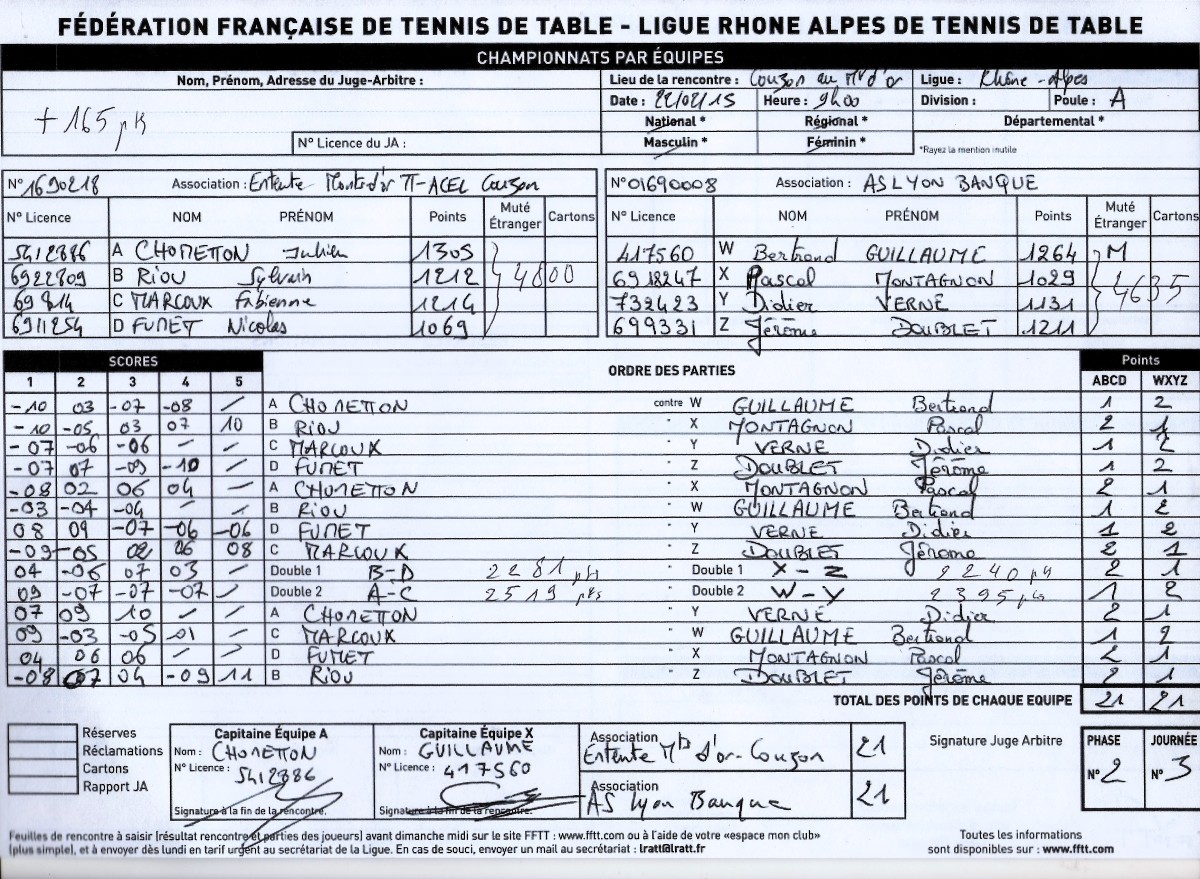 FÉDÉRATION FRANÇAISE DE TENNIS DE TABLE - LIGUE RHONE ALPES DE TENNIS DE TABLE
CHAMPIONNATS PAR ÉQUIPES
Nom, Prénom, Adresse du Juge-Arbitre : Lieu de la rencontre : Couzon au Mt d'or Ligue : Rhône-Alpes
Date : 22/02/15 Heure : 9h00 Division : Poule : A
+ 165 pts National * Régional * Départemental *
N° Licence du JA : Masculin * Féminin * *Rayez la mention inutile
N° 1690218 Association : Entente Monts d'or TT-ACEL Couzon N° 01690008 Association : AS LYON BANQUE
N° Licence NOM PRÉNOM Points Muté Étranger Cartons N° Licence NOM PRÉNOM Points Muté Étranger Cartons
5412386 A CHOMETTON Julien 1305 417560 W Bertrand GUILLAUME 1264 M
6922809 B RIOU Sylvain 1212 4800 6918247 X Pascal MONTAGNON 1029 4635
69 814 C MARCOUX Fabienne 1214 732423 Y Didier VERNE 1131
6911254 D FUMET Nicolas 1069 699331 Z Jérôme DOUBLET 1211
SCORES ORDRE DES PARTIES Points
1 2 3 4 5 ABCD WXYZ
-10 03 -07 -08 / A CHOMETTON contre W GUILLAUME Bertrand 1 2
-10 -05 03 07 10 B RIOU " X MONTAGNON Pascal 2 1
-07 -06 -06 - - C MARCOUX " Y VERNE Didier 1 2
-07 07 -09 -10 / D FUMET " Z DOUBLET Jérôme 1 2
-08 02 06 04 / A CHOMETTON " X MONTAGNON Pascal 2 1
-03 -04 -04 \ \ B RIOU " W GUILLAUME Bertrand 1 2
08 09 -07 -06 -06 D FUMET " Y VERNE Didier 1 2
-09 -05 02 06 08 C MARCOUX " Z DOUBLET Jérôme 2 1
04 -06 07 03 / Double 1 B-D 2281 pts " Double 1 X-Z 2240 pts 2 1
09 -07 -07 -07 / Double 2 A-C 2519 pts " Double 2 W-Y 2395 pts 1 2
07 09 10 - / A CHOMETTON " Y VERNE Didier 2 1
09 -03 -05 -01 / C MARCOUX " W GUILLAUME Bertrand 1 2
04 06 06 / / D FUMET " X MONTAGNON Pascal 2 1
-08 07 04 -09 11 B RIOU " Z DOUBLET Jérôme 2 1
TOTAL DES POINTS DE CHAQUE EQUIPE 21 21
Réserves
Réclamations
Cartons
Rapport JA
Capitaine Équipe A
Nom : CHOMETTON
N° Licence : 5412386
Signature à la fin de la rencontre.
Capitaine Équipe X
Nom : GUILLAUME
N° Licence : 417560
Signature à la fin de la rencontre.
Association
Entente Mts d'or-Couzon 21
Association
AS Lyon Banque 21
Signature Juge Arbitre
PHASE JOURNÉE
N° 2 N° 3
Feuilles de rencontre à saisir (résultat rencontre et parties des joueurs) avant dimanche midi sur le site FFTT : www.fftt.com ou à l'aide de votre «espace mon club»
(plus simple), et à envoyer dès lundi en tarif urgent au secrétariat de la Ligue. En cas de souci, envoyer un mail au secrétariat : lratt@lratt.fr
Toutes les informations
sont disponibles sur : www.fftt.com